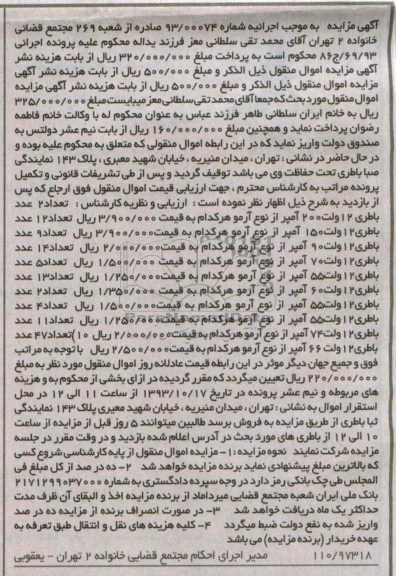 آگهی مزایده به موجب اجرائیه شماره 93/00074 صادره از شعبه 269 مجتمع قضائی
خانواده 2 تهران آقای محمد تقی سلطانی معز فرزند یداله محکوم علیه پرونده اجرائی
86ج/69/93 محکوم است به پرداخت مبلغ 320/000/000 ریال از بابت هزینه نشر
آگهی مزایده اموال منقول ذیل الذکر و مبلغ 500/000 ریال از بابت هزینه نشر آگهی
مزایده اموال منقول ذیل الذکر و مبلغ 500/000 ریال از بابت هزینه نشر آگهی مزایده
اموال منقول مورد بحث که جمعا آقای محمد تقی سلطانی معز میبایست مبلغ 325/000/000
ریال به خانم ایران سلطانی طاهر فرزند عباس به عنوان محکوم له با وکالت خانم فاطمه
رضوان پرداخت نماید و همچنین مبلغ 160/000/000 ریال از بابت نیم عشر دولتس به
صندوق دولت واریز نماید که در این رابطه اموال منقولی که متعلق به محکوم علیه بوده و
در حال حاضر در نشانی : تهران ، میدان منیریه ، خیابان شهید معیری ، پلاک 143 نمایندگی
صبا باطری تحت حفاظت وی می باشد توقیف گردید و پس از طی تشریفات قانونی و تکمیل
پرونده مراتب به کارشناس محترم ، جهت ارزیابی قیمت اموال منقول فوق ارجاع که پس
از بازدید به شرح ذیل اظهار نظر نموده است : ارزیابی و نظریه کارشناس : تعداد 2 عدد
باطری 12 ولت 200 آمپر از نوع آرمو هرکدام به قیمت 3/900/000 ریال تعداد 12 عدد
باطری 12 ولت 150 آمپر از نوع آرمو هرکدام به قیمت 3/900/000 ریال تعداد 9 عدد
باطری 12 ولت 90 آمپر از نوع آرمو هرکدام به قیمت 2/000/000 ریال تعداد 14 عدد
باطری 12 ولت 70 آمپر از نوع آرمو هرکدام به قیمت 1/500/000 ریال تعداد 5 عدد
باطری 12 ولت 55 آمپر از نوع آرمو هرکدام به قیمت 1/250/000 ریال تعداد 13 عدد
باطری 12 ولت 60 آمپر از نوع آرمو هرکدام به قیمت 1/350/000 ریال تعداد 2 عدد
باطری 12 ولت 55 آمپر از نوع آرمو هرکدام به قیمت 1/500/000 ریال تعداد 4 عدد
باطری 12 ولت 55 آمپر از نوع آرمو هرکدام به قیمت 1/250/000 ریال تعداد 11 عدد
باطری 12 ولت 74 آمپر از نوع آرمو هرکدام به قیمت 2/000/000 ریال 10) تعداد 47 عدد
باطری 12 ولت 66 آمپر از نوع آرمو هرکدام به قیمت 2/500/000 ریال با توجه به مراتب
فوق و جمیع جهان دیگر موثر در این رابطه قیمت عادلانه روز اموال منقول مورد نظر به مبلغ
220/000/000 ریال تعیین میگردد که مقرر گردیده در ازای بخشی از محکوم به و هزینه
های مربوطه و نیم عشر پرونده در تاریخ 1393/10/17 از ساعت 11 الی 12 در محل
استقرار اموال به نشانی : تهران ، میدان منیریه ، خیابان شهید معیری پلاک 143 نمایندگی
ثبا باطری از طریق مزایده به فروش برسد طالبین میتوانند 5 روز قبل از مزایده از ساعت
10 الی 12 از باطری های مورد بحث در آدرس اعلام شده بازدید و در وقت مقرر در جلسه
مزایده شرکت نمایند نحوه مزایده : 1- مزایده اموال منقول از پایه کارشناسی شروع کسی
که بالاترین مبلغ پیشنهادی نماید برنده مزایده خواهد شد 2- ده در صد از کل مبلغ فی
المجلس طی چک بانکی رمز دارد در وجه سپرده دادگستری به شماره 2171299037000
بانک ملی ایران شعبه مجتمع قضایی میرداماد از برنده مزایده اخذ و البقای آن ظرف مدت
حداکثر یک ماه دریافت خواهد شد 3- در صورت انصراف برنده از مزایده ده در صد
واریز شده به نفع دولت ضبط میگردد 4- کلیه هزینه های نقل و انتقال طبق تعرفه به
عهده خریدار (برنده مزایده) می باشد
110/97318 مدیر اجرای احکام مجتمع قضایی خانواده 2 تهران - یعقوبی